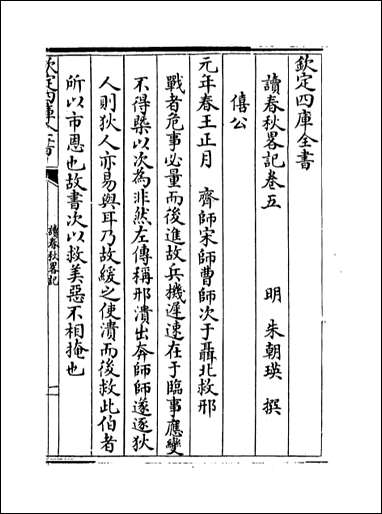 欽定四庫全書
讀春秋畧記卷五
明 朱朝瑛 撰
僖公
元年春王正月 齊師宋師曹師次于聶北救邢
戰者危事必量而後進故兵機遲速在于臨事應變
不得槩以次為非然左傳稱邢潰出奔師師遂逐狄
人則狄人亦易與耳乃故緩之使潰而後救此伯者
所以市恩也故書次以救美惡不相掩也
欽定四庫全書
讀春秋畧記
一